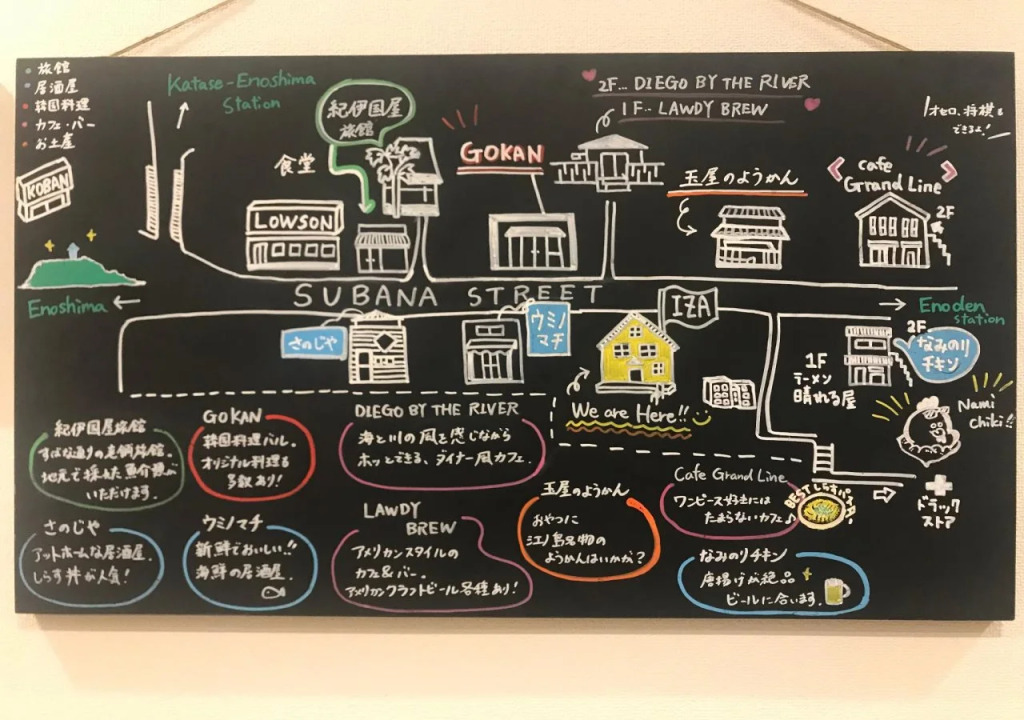 旅館
居酒屋
韓国料理
カフェ・バー
お土産
KOBAN
Katase-Enoshima
Station
紀伊国屋
旅館
食堂
LOWSON
GOKAN
2F... DIEGO BY THE RIVER
1F.. LAWDY BREW
玉屋のようかん
オセロ、将棋も
できるよ!
cafe
Grand Line
2F
Enoshima ←
SUBANA STREET
→ Enoden
station
さのじや
ウミノ
マチ
IZA
We are Here!!
2F
なみのり
チキン
1F
ラーメン
晴れる屋
Nami
chiki!!
BEST しらすパスタ!
ドラック
ストア
紀伊国屋旅館
すばな通りの老舗旅館。
地元で採れた魚介類が
いただけます。
GOKAN
韓国料理バル。
オリジナル料理も
多数あり!
DIEGO BY THE RIVER
海と川の風を感じながら
ホッとできる、ダイナー風カフェ。
さのじや
アットホームな居酒屋。
しらす丼が人気!
ウミノマチ
新鮮でおいしい!!
海鮮の居酒屋。
LAWDY
BREW
アメリカンスタイルの
カフェ&バー。
アメリカンクラフトビール各種あり!
玉屋のようかん
おやつに
江ノ島名物の
ようかんはいかが?
Cafe Grand Line
ワンピース好きには
たまらないカフェ♪
なみのりチキン
唐揚げが絶品
ビールに合います。